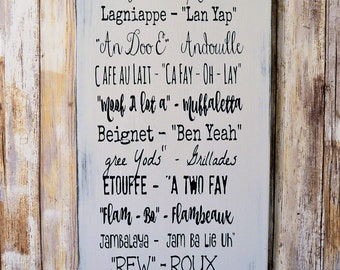 Lagniappe - "Lan Yap"
"An Doo E" Andouille
Cafe au Lait - "Ca Fay - Oh - Lay"
"Moof A lot a" - Muffaletta
Beignet - "Ben Yeah"
gree Yods" - Grillades
Etouffe - "A Two Fay
"Flam - Bo" - Flambeaux
Jambalaya - Jam Ba Lie Uh"
"REW" - ROUX